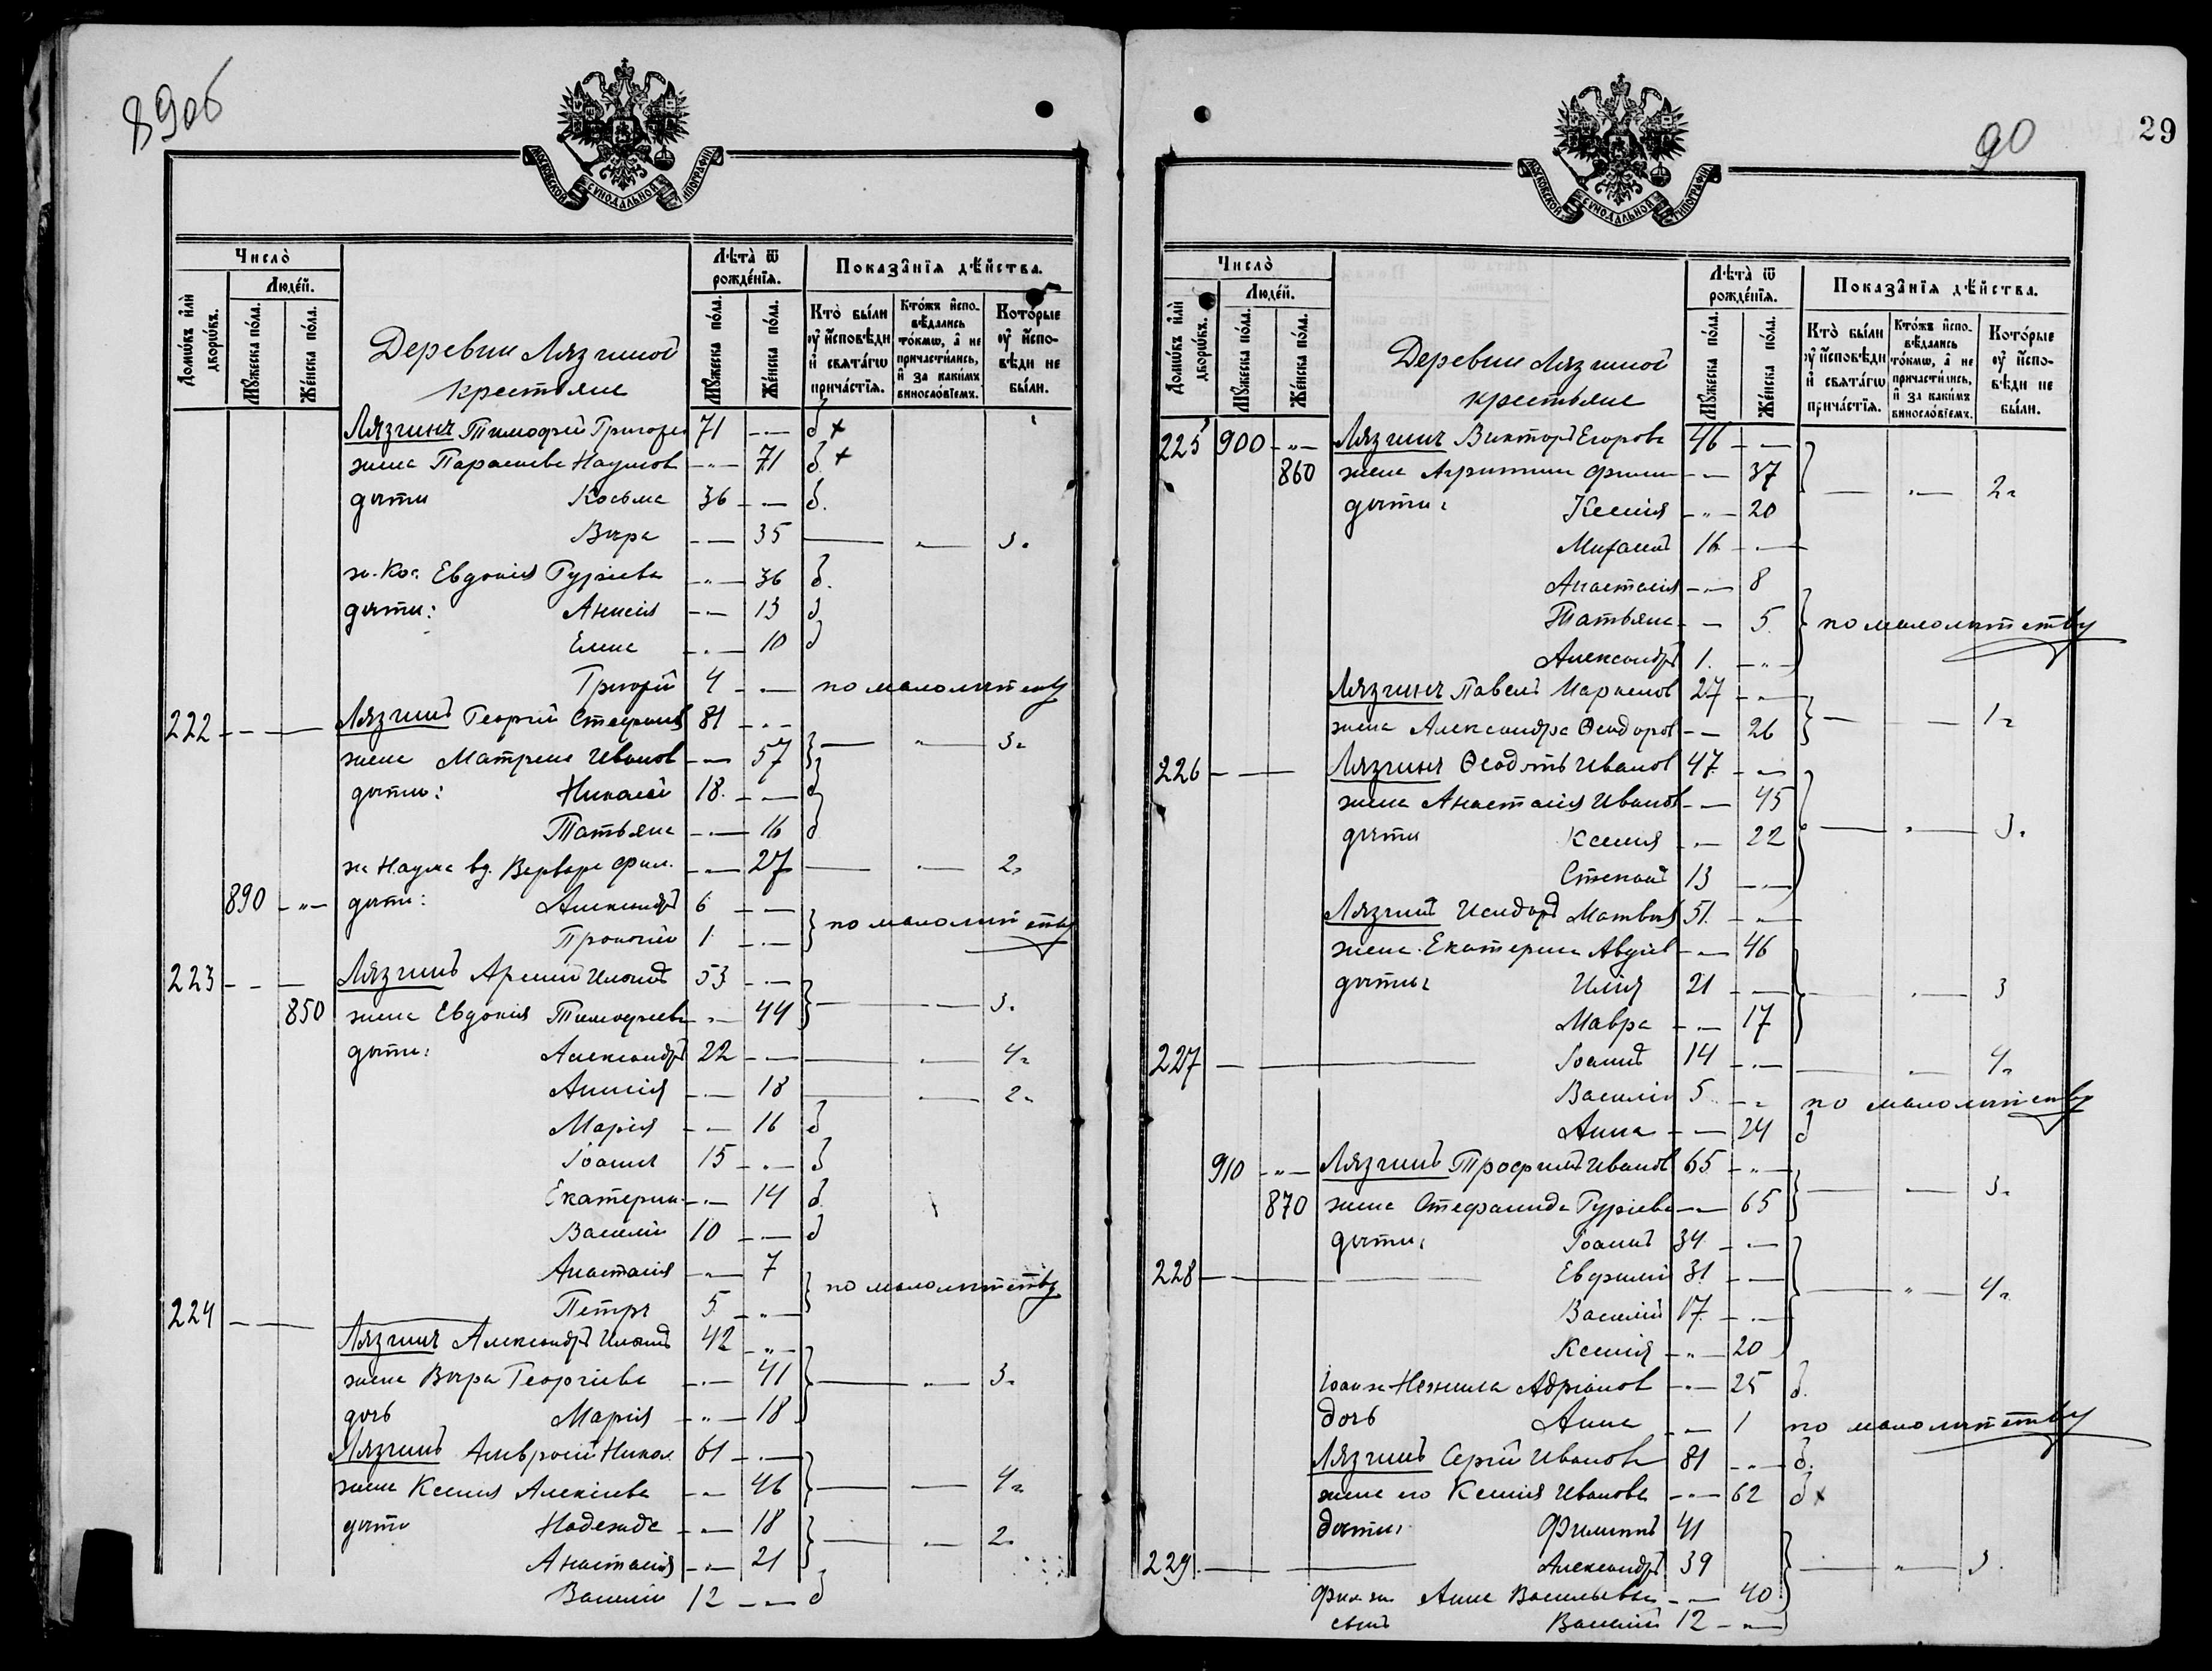 89об
МОСКОВСКОЙ СѴНОДАЛЬНОЙ ТИПОГРАФІИ
Число̀
Людей.
Домѡвъ и҆лѝ дворѡвъ.
Мꙋжеска по́ла.
Же́нска по́ла.
Деревни Лязгиной
крестьяне
Лѣта̀ ѿ рожде́нїѧ.
Мꙋжеска по́ла.
Же́нска по́ла.
Показа̑нїѧ дѣ́йства.
Кто̀ бы́ли ᲂу҆ и҆сповѣди и҆ свѧта́гѡ прича́стїѧ.
Кто́жъ и҆сповѣдались то́кмѡ, а҆ не причасти́лись, и҆ за каки́мъ винослѡвїемъ.
Кото́рые ᲂу҆ и҆сповѣди не бы́ли.
Лязгинъ Тимофей Григорье 71 - — б +
жена Параскева Наумов - — 71 б. +
дѣти Косьма 36 - — б.
Вѣра - — 35 — „ — 3.
ж. Кос. Евдокія Гуріева - „ — 36 б.
дѣти: Анисія - — 13 б
Елена - — 10 б
Григорій 4 - — по малолѣтству
222 - - — Лязгинъ Георгій Стефанов 81 - - -
жена Матрена Иванов - — 57 — „ — 3.
дѣти: Николай 18. - — б
Татьяна - — 16 б
ж Наума вд. Варвара Фил. - — 27 — — 2.
890 - „ — дѣти: Александръ 6 - —
Прокопій 1 - — по малолѣтству
223 - - — Лязгинъ Арсеній Иліинъ 53 - —
850 жена Евдокія Тимофеева - — 44 — — 3.
дѣти: Александръ 22 - — — — 4.
Анисія - — 18 — — 2.
Марія - — 16 б
Іоаннъ 15 - — б
Екатерин - — 14 б
Василій 10 - — б
Анастасія - — 7
Петръ 5 - „ — по малолѣтству
224 - —
Лязгинъ Александръ Иліинъ 42 - „ -
жена Вѣра Георгіева - — 41 — — 3.
дочь Марія - „ — 18
Лязгинъ Амвросій Никол. 61 - —
жена Ксенія Алексіева - — 46 — — 4.
дѣти Надежда - — 18
Анастасія - — 21 — — 2.
Василій 12 - — б
90
29
МОСКОВСКОЙ СѴНОДАЛЬНОЙ ТИПОГРАФІИ
Число̀
Людей.
Домѡвъ и҆лѝ дворѡвъ.
Мꙋжеска по́ла.
Же́нска по́ла.
Деревни Лязгиной
крестьяне
Лѣта̀ ѿ рожде́нїѧ.
Мꙋжеска по́ла.
Же́нска по́ла.
Показа̑нїѧ дѣ́йства.
Кто̀ бы́ли ᲂу҆ и҆сповѣди и҆ свѧта́гѡ прича́стїѧ.
Кто́жъ и҆сповѣдались то́кмѡ, а҆ не причасти́лись, и҆ за каки́мъ винослѡвїемъ.
Кото́рые ᲂу҆ и҆сповѣди не бы́ли.
225 900 - „ — Лязгинъ Викторъ Егорова 46 - —
860 жена Агриппина Филип - — 37
дѣти: Ксенія - „ — 20 — „ — 2.
Михаилъ 16 - —
Анастасія - — 8
Татьяна - — 5.
Александръ 1. - „ - по малолѣтству
Лязгинъ Павелъ Маркелов 27 - —
жена Александра Ѳеодоров - — 26 — — 1.
226 - — Лязгинъ Ѳеодотъ Иванов 47 - —
жена Анастасія Иванов - — 45
дѣти Ксенія - — 22 — „ — 3.
Стефанъ 13 - —
Лязгинъ Исидоръ Матвѣев 51. - —
жена Екатерина Авдіев - — 46
дѣти: Илія 21 - — — „ — 3
Мавра - — 17
227 - — Іоаннъ 14 - — — „ — 4.
Василій 5 - - по малолѣтству
Анна - — 24 б
910 - „ — Лязгинъ Трофимъ Иванов 65 - „ -
870 жена Стефанида Гуріева - — 65 — — 3.
дѣти: Іоаннъ 34 - —
228 - — Евфимій 31 - — — „ — 4.
Василій 17 - —
Ксенія - „ — 20
Іоан ж Неонила Адріанов - — 25 б.
дочь Анна - — 1 по малолѣтству
Лязгинъ Сергій Иванов 81 - — б.
жена его Ксенія Иванова - — 62 б х
дѣти: Филиппъ 41
229. — Александръ 39 — „ — 3.
Фил жен Анна Васильева - — 40
сынъ Василій 12 - —